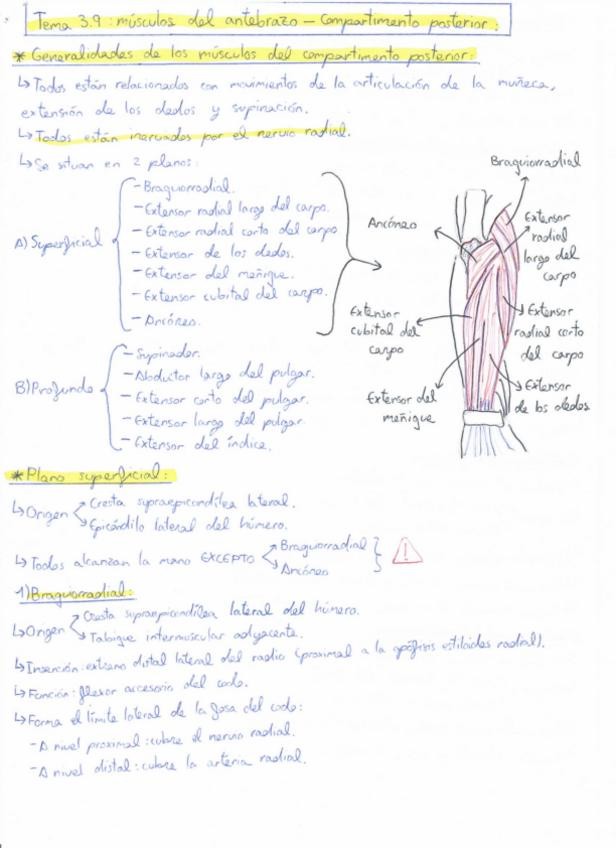 Tema 3.9: músculos del antebrazo - Compartimento posterior:
* Generalidades de los músculos del compartimento posterior:
↳ Todos están relacionados con movimientos de la articulación de la muñeca,
extensión de los dedos y supinación.
↳ Todos están inervados por el nervio radial.
↳ Se situan en 2 planos:
A) Superficial
- Braquiorradial.
- Extensor radial largo del carpo.
- Extensor radial corto del carpo
- Extensor de los dedos.
- Extensor del meñique.
- Extensor cubital del carpo.
- Ancóneo.
B) Profundo
- Supinador.
- Abductor largo del pulgar.
- Extensor corto del pulgar.
- Extensor largo del pulgar.
- Extensor del índice.
Braquiorradial
Ancóneo
Extensor
radial
largo del
carpo
Extensor
cubital del
carpo
Extensor
radial corto
del carpo
Extensor del
meñique
Extensor
de los dedos
* Plano superficial:
↳ Origen
Cresta supraepicondílea lateral.
Epicóndilo lateral del húmero.
↳ Todos alcanzan la mano EXCEPTO
Braquiorradial
Ancóneo
!
1) Braquiorradial:
↳ Origen
Cresta supraepicondílea lateral del húmero.
Tabique intermuscular adyacente.
↳ Inserción: extremo distal lateral del radio (proximal a la apófisis estiloides radial).
↳ Función: flexor accesorio del codo.
↳ Forma el límite lateral de la fosa del codo:
- A nivel proximal: cubre el nervio radial.
- A nivel distal: cubre la arteria radial.